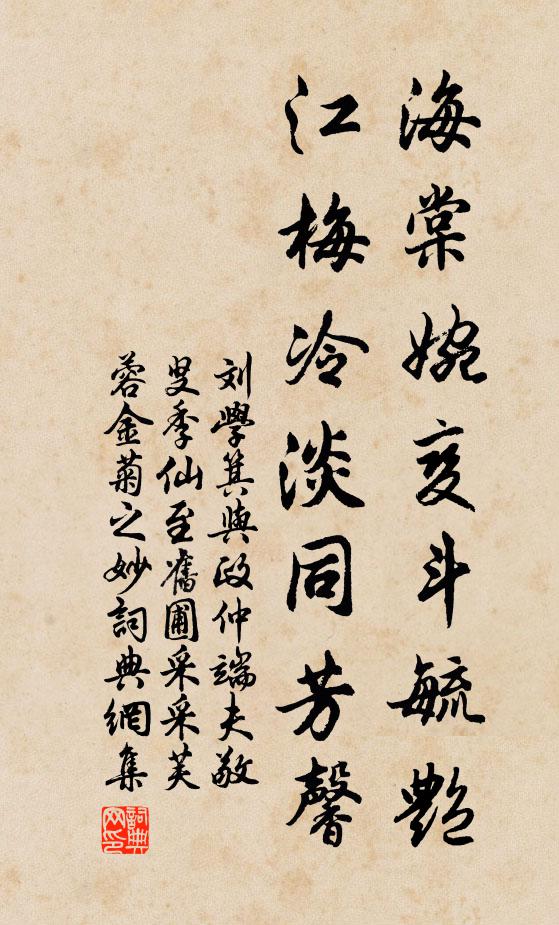 海棠婉娈斗毓艷
江梅冷淡同芳馨
刘學箕與政仲端夫敬
叟季仙至舊圃采采芙
蓉金菊之妙詞典網集
詞典网印